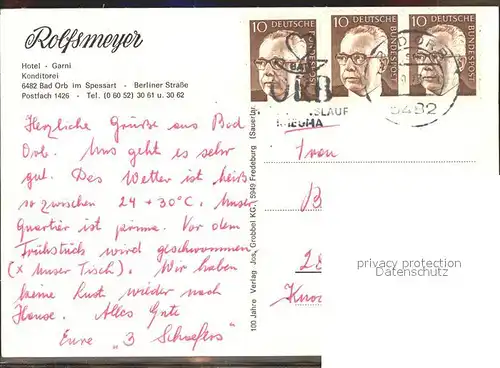 Rolfsmeyer
Hotel - Garni
Konditorei
6482 Bad Orb im Spessart - Berliner Straße
Postfach 1426 - Tel. (0 60 52) 30 61 u. 30 62
Herzliche Grüße aus Bad
Orb. Uns geht es sehr
gut. Das Wetter ist heiß
so zwischen 24 + 30°C. Unser
Quartier ist prima. Vor dem
Frühstück wird geschwommen
(x Unser Tisch). Wir haben
keine Lust wieder nach
Hause. Alles Gute
Eure „3 Schaefers
100 Jahre Verlag Jos. Grobbel KG, 5949 Fredeburg (Sauerla
10 DEUTSCHE BUNDESPOST
10 DEUTSCHE BUNDESPOST
10 DEUTSCHE BUNDESPOST
BAD
ORB
SLAUF
RHEUMA
6482
Frau
B
28
Knoo
privacy protection
Datenschutz